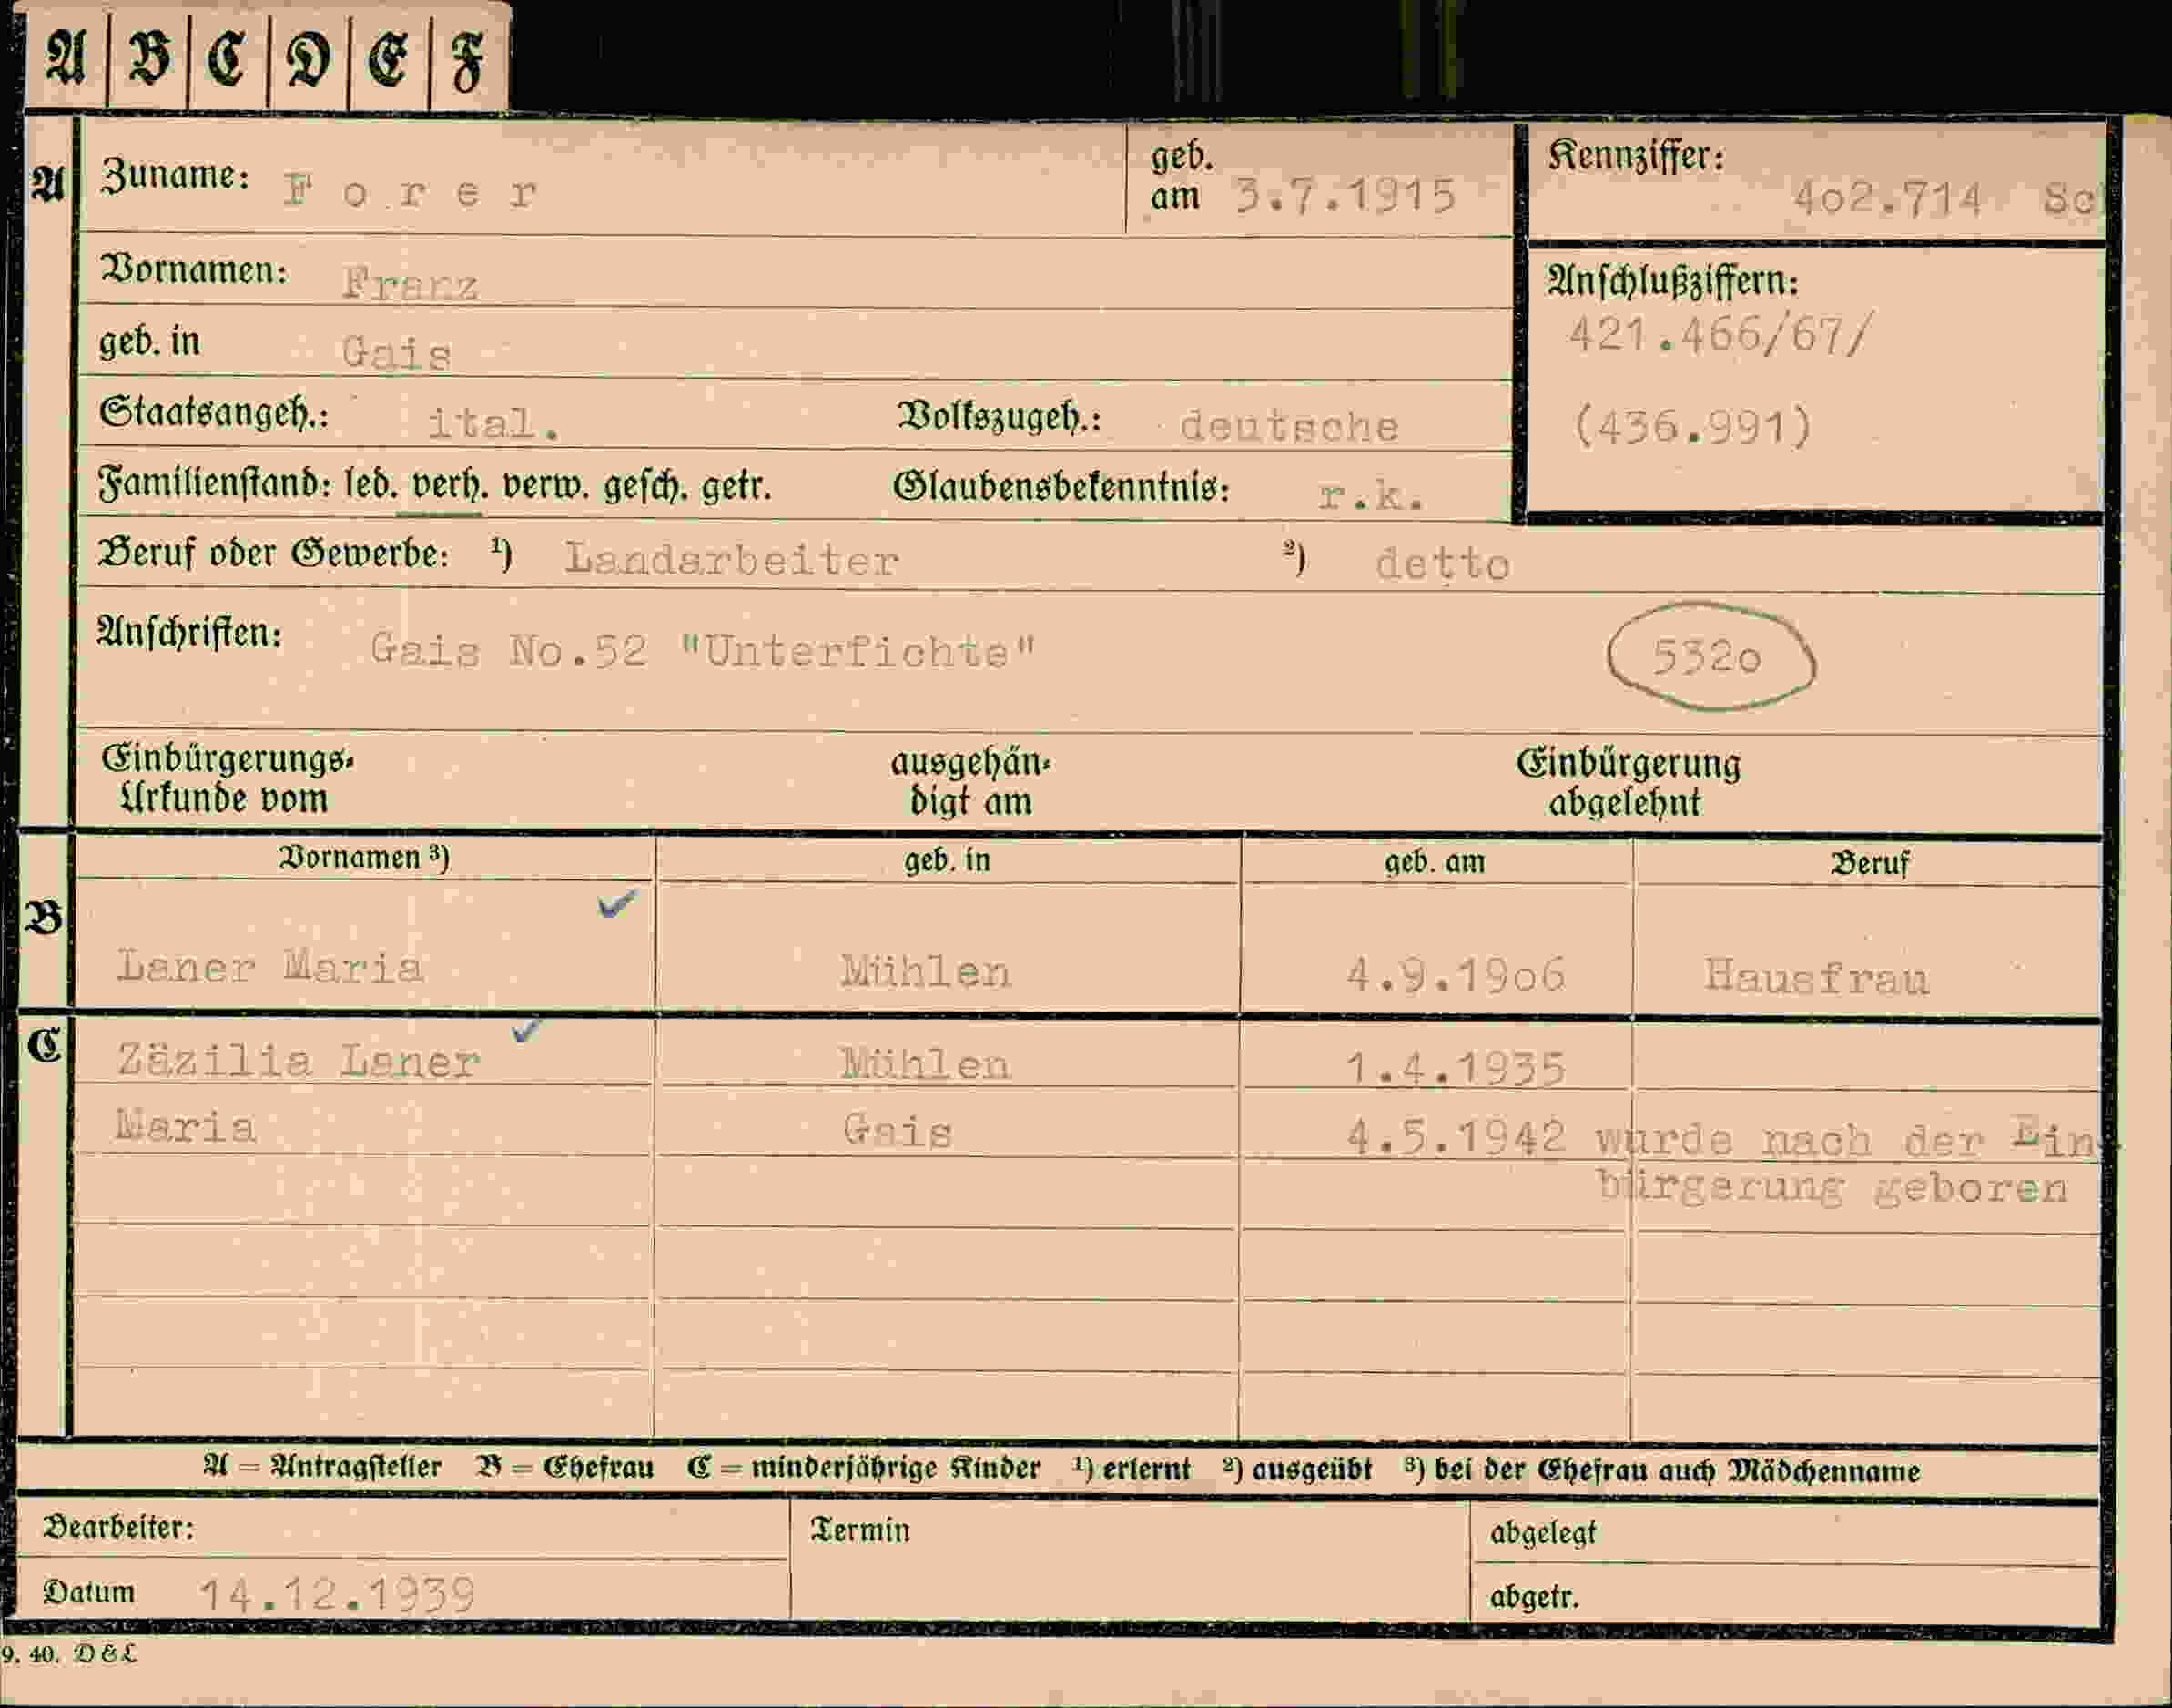 A B C D E F
A Zuname: Forer geb. am 3.7.1915 Kennziffer: 4o2.714 Sc
Vornamen: Franz Anschlußziffern:
geb. in Gais 421.466/67/
Staatsangeh.: ital. Volkszugeh.: deutsche (436.991)
Familienstand: led. verh. verw. gesch. getr. Glaubensbekenntnis: r.k.
Beruf oder Gewerbe: ¹) Landarbeiter ²) detto
Anschriften: Gais No.52 "Unterfichte" 532o
Einbürgerungs- ausgehän- Einbürgerung
Urkunde vom digt am abgelehnt
Vornamen ³) geb. in geb. am Beruf
B Laner Maria Mühlen 4.9.19o6 Hausfrau
C Zäzilia Laner Mühlen 1.4.1935
Maria Gais 4.5.1942 wurde nach der Ein-
bürgerung geboren
A = Antragsteller B = Ehefrau C = minderjährige Kinder ¹) erlernt ²) ausgeübt ³) bei der Ehefrau auch Mädchenname
Bearbeiter: Termin abgelegt
Datum 14.12.1939 abgetr.
9. 40. D & L